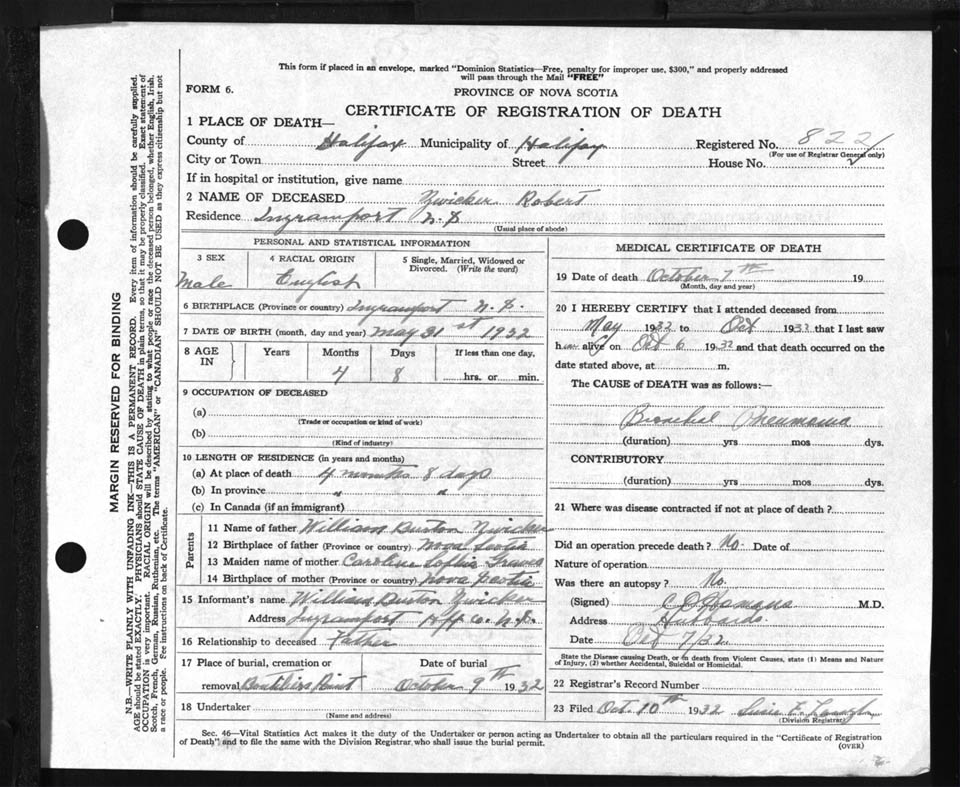 This form if placed in an envelope, marked "Dominion Statistics—Free, penalty for improper use, $300," and properly addressed
will pass through the Mail "FREE"
FORM 6.
PROVINCE OF NOVA SCOTIA
CERTIFICATE OF REGISTRATION OF DEATH
1 PLACE OF DEATH—
County of Halifax Municipality of Halifax Registered No. 822
(For use of Registrar General only)
City or Town Street House No.
If in hospital or institution, give name
2 NAME OF DECEASED Zwicker Robert
Residence Ingramport N.S.
(Usual place of abode)
PERSONAL AND STATISTICAL INFORMATION
3 SEX 4 RACIAL ORIGIN 5 Single, Married, Widowed or
Divorced. (Write the word)
Male English
6 BIRTHPLACE (Province or country) Ingramport N.S.
7 DATE OF BIRTH (month, day and year) May 31st 1932
8 AGE IN Years Months Days If less than one day,
4 8 hrs. or min.
9 OCCUPATION OF DECEASED
(a)
(Trade or occupation or kind of work)
(b)
(Kind of industry)
10 LENGTH OF RESIDENCE (in years and months)
(a) At place of death 4 months 8 days
(b) In province " "
(c) In Canada (if an immigrant)
Parents
11 Name of father William Burton Zwicker
12 Birthplace of father (Province or country) Nova Scotia
13 Maiden name of mother Caroline Sophia
14 Birthplace of mother (Province or country) Nova Scotia
15 Informant's name William Burton Zwicker
Address Ingramport Hfx Co. N.S.
16 Relationship to deceased Father
17 Place of burial, cremation or Date of burial
removal Boutiliers Point October 9th 1932
18 Undertaker
(Name and address)
MEDICAL CERTIFICATE OF DEATH
19 Date of death October 7th 19
(Month, day and year)
20 I HEREBY CERTIFY that I attended deceased from
May 1932 to Oct 1932 that I last saw
him alive on Oct 6 1932 and that death occurred on the
date stated above, at m.
The CAUSE of DEATH was as follows:—
Bronchial Pneumonia
(duration) yrs mos dys.
CONTRIBUTORY
(duration) yrs mos dys.
21 Where was disease contracted if not at place of death?
Did an operation precede death? No. Date of
Nature of operation
Was there an autopsy? No.
(Signed) M.D.
Address Hubbards.
Date Oct 7/32
State the Disease causing Death, or in death from Violent Causes, state (1) Means and Nature
of Injury, (2) whether Accidental, Suicidal or Homicidal.
22 Registrar's Record Number
23 Filed Oct. 10th 1932 Susie E.
(Division Registrar)
Sec. 46—Vital Statistics Act makes it the duty of the Undertaker or person acting as Undertaker to obtain all the particulars required in the "Certificate of Registration
of Death" and to file the same with the Division Registrar, who shall issue the burial permit.
(OVER)
MARGIN RESERVED FOR BINDING
N.B.—WRITE PLAINLY WITH UNFADING INK—THIS IS A PERMANENT RECORD. Every item of information should be carefully supplied.
AGE should be stated EXACTLY. PHYSICIANS should STATE CAUSE OF DEATH in plain terms, so that it may be properly classified. Exact statement of
OCCUPATION is very important. RACIAL ORIGIN will be described by stating to what people or race the deceased person belonged, whether English, Irish,
Scotch, French, German, Russian, Ruthenian, etc. The terms "AMERICAN" or "CANADIAN" SHOULD NOT BE USED as they express citizenship but not
a race or people. See instructions on back of Certificate.